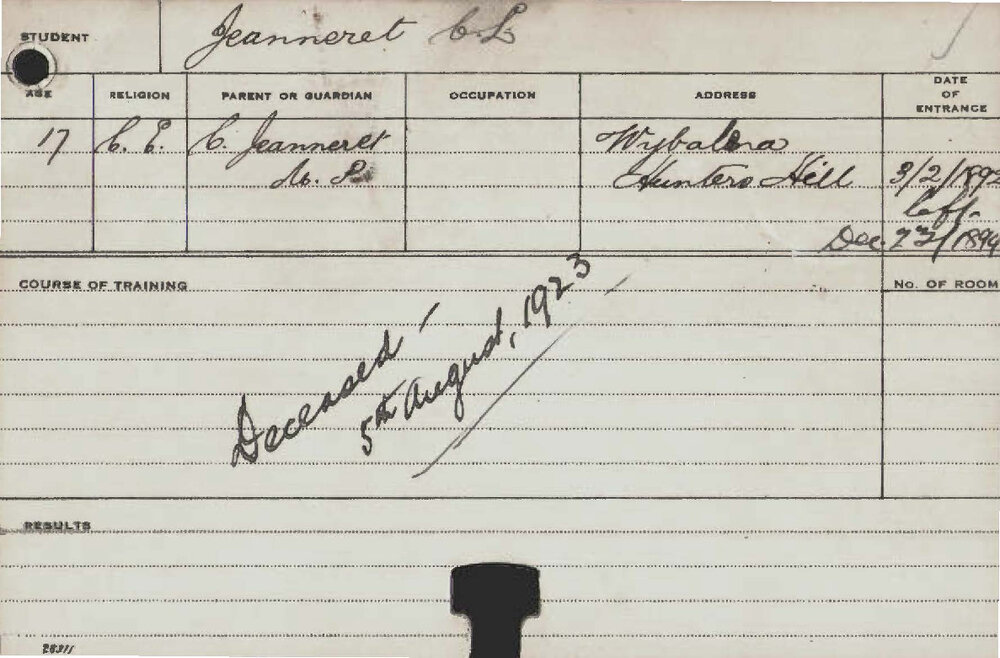 STUDENT Jeanneret C.L
AGE RELIGION PARENT OR GUARDIAN OCCUPATION ADDRESS DATE OF ENTRANCE
17 C. E. C. Jeanneret Wybalena
Hunters Hill 3/2/1892
Left
Dec. 1894
COURSE OF TRAINING No. OF ROOM
Deceased
5th August, 1923
RESULTS